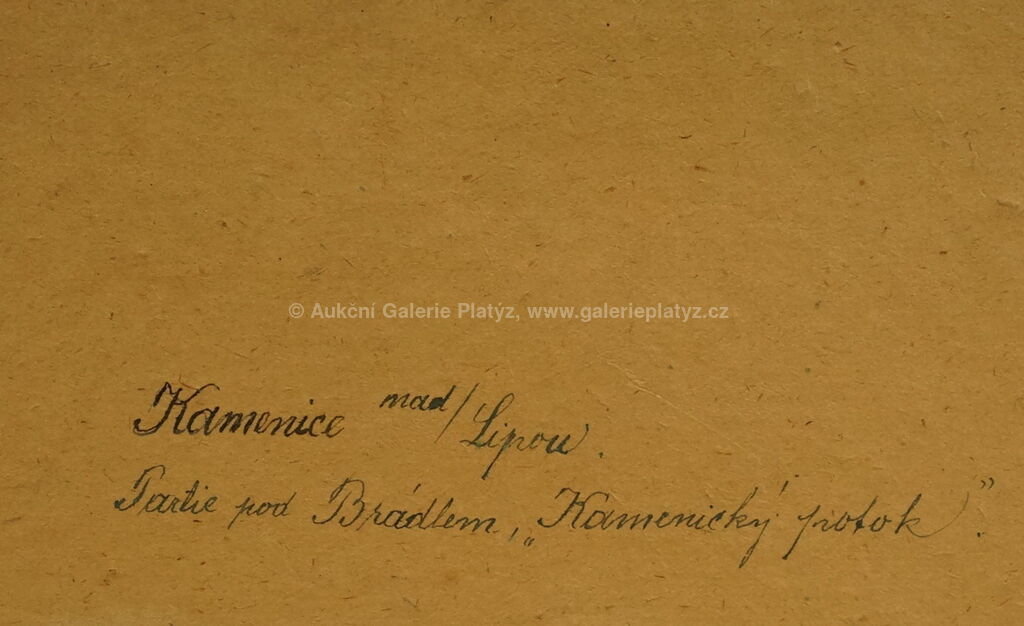 © Aukční Galerie Platýz, www.galerieplatyz.cz
Kamenice nad/Lipou.
Partie pod Brádlem, „Kamenický potok”.